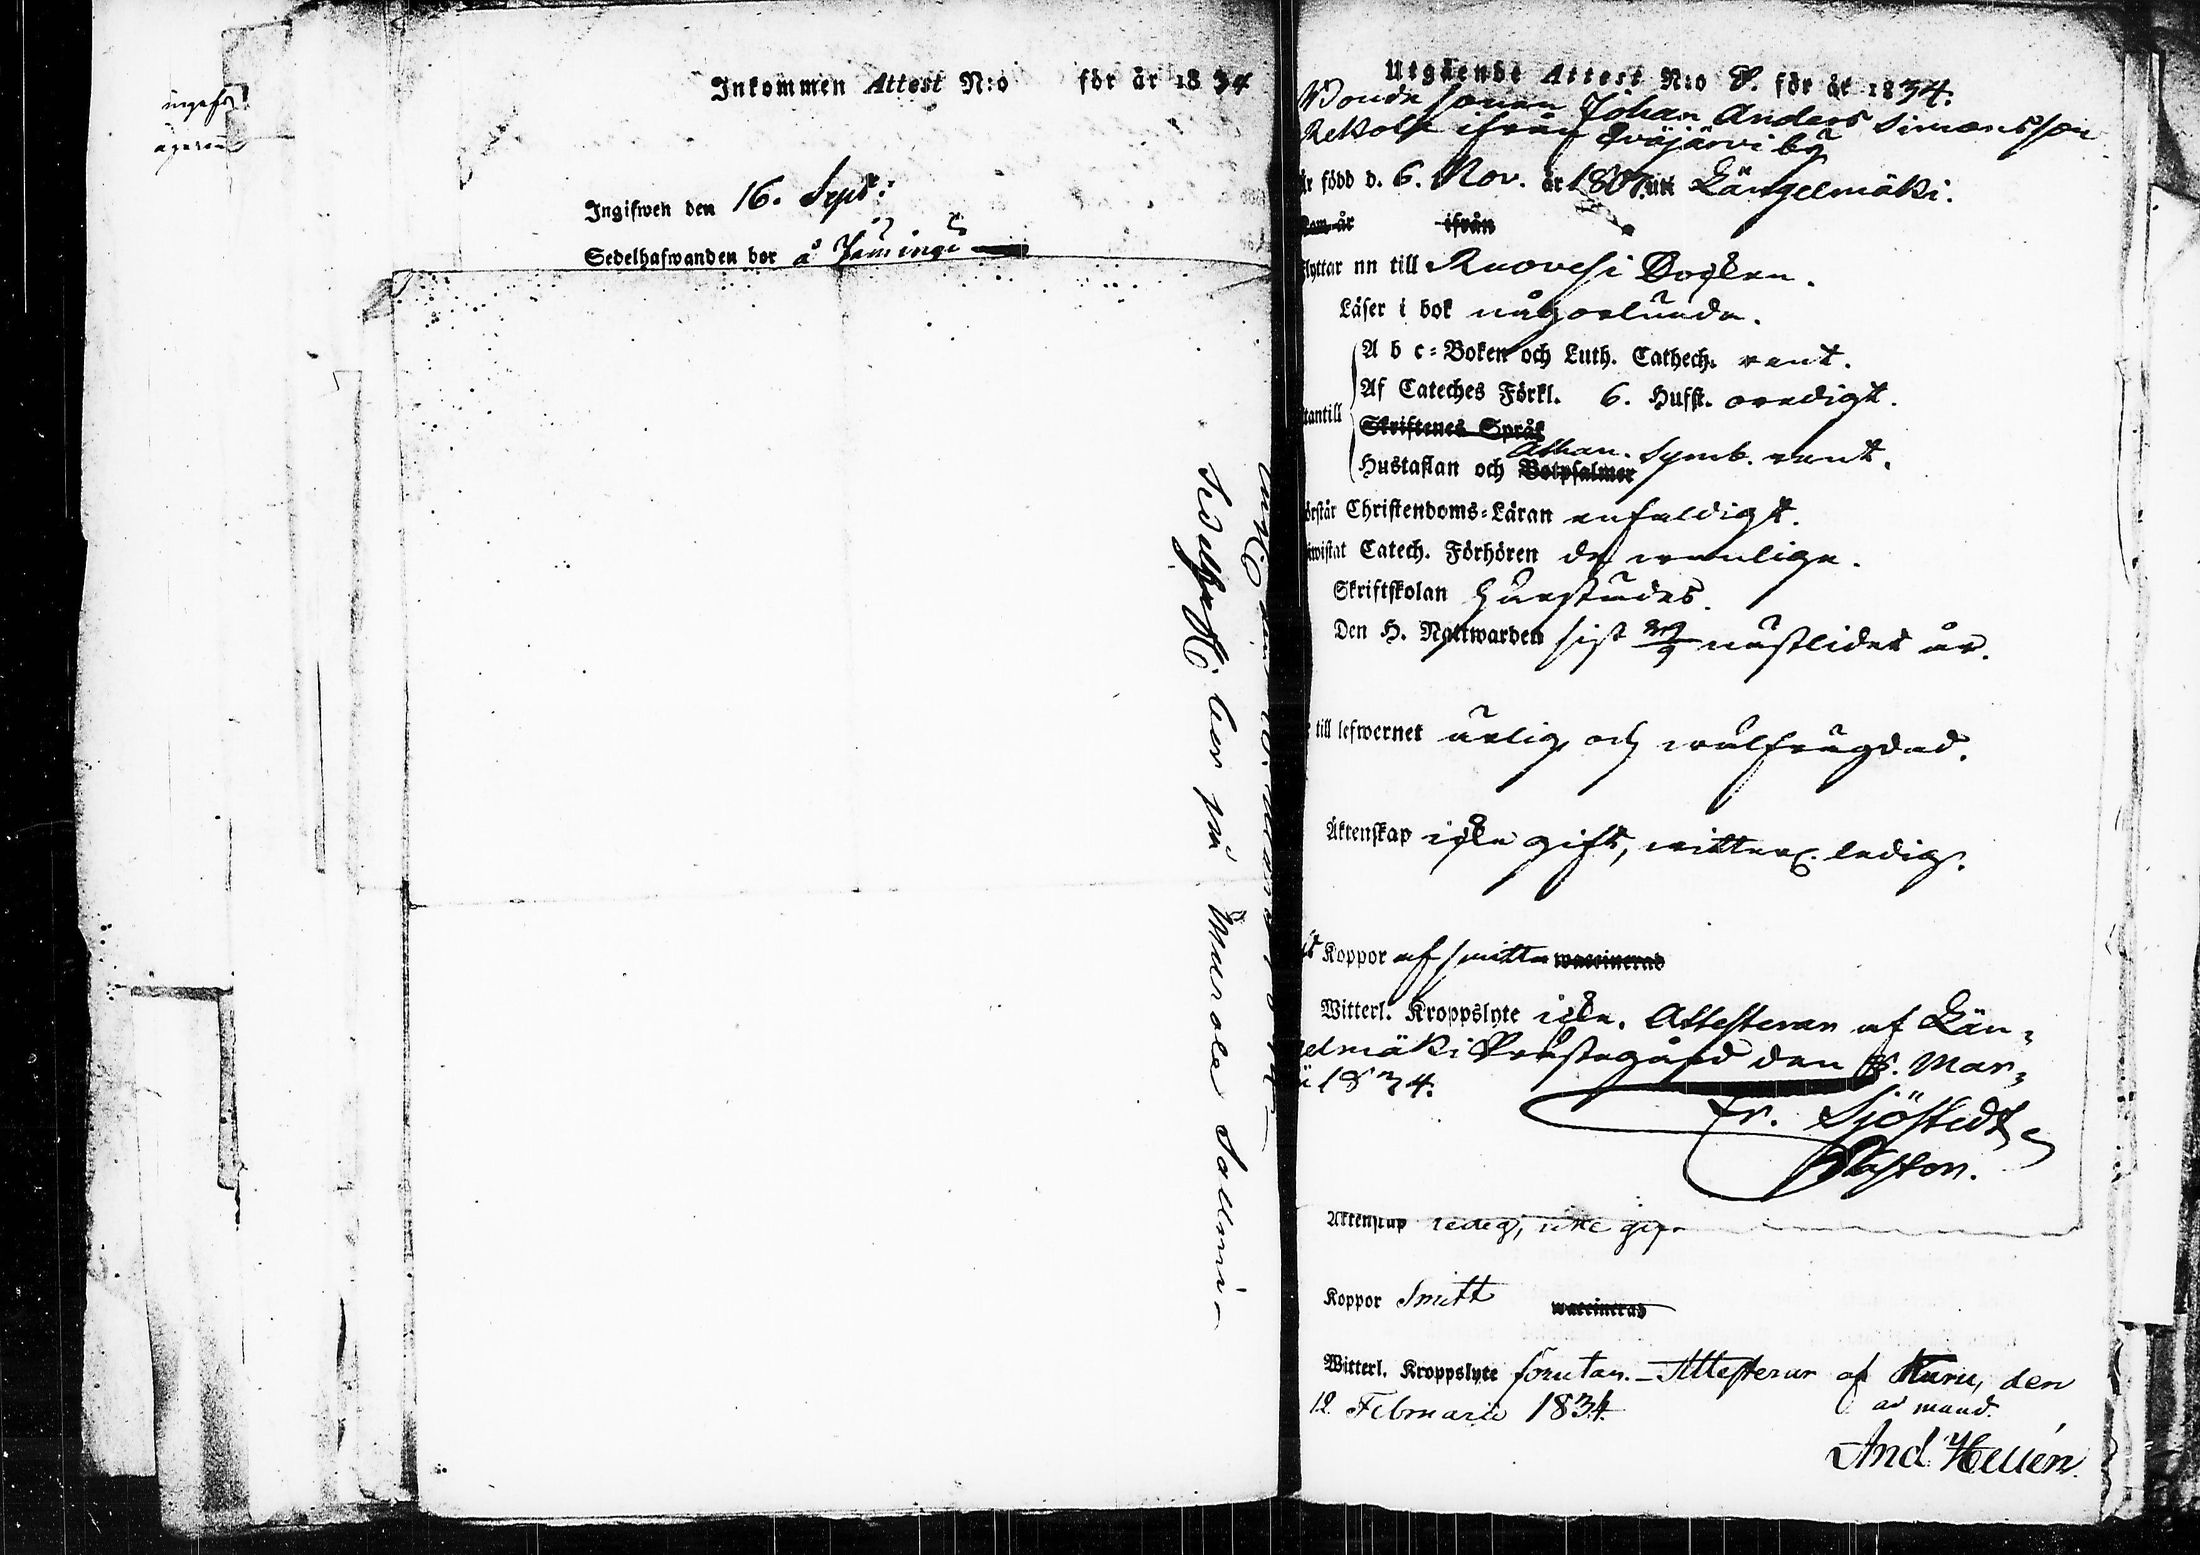 ingifv
ägaren
Inkommen Attest N:o för år 1834
Ingifwen den 16. Sept:
Sedelhafwanden bor å
Sedelhaf: bor på Murole Salmi
Utgående Attest N:o 8. för år 1834.
Bonde sonen Johan Anders Simonsson
Rekola ifrån by
är född d. 6. Nov. år 1807. uti Längelmäki.
Kom år ifrån
flyttar nu till Ruovesi Socken.
Läser i bok någorlunda.
A b c-Boken och Luth. Cathech. rent.
Af Cateches Förkl. 6. Hufst. oredigt.
utantill
Skriftenes Språk
Athan. Symb. rent.
Hustaflan och Botpsalmer
förstår Christendoms-Läran enfaldigt.
biwistat Catech. Förhören de wanliga.
Skriftskolan härstädes.
Den H. Nattwarden sist nästlidet år.
till lefwernet ärlig och wälfrägdad.
Äktenskap icke gift, witterl. ledig.
Koppor af smitta waccinerad
Witterl. Kroppslyte icke. Attesteras af Län-
gelmäki Prästegård den 8. Mar-
tii 1834.
Fr. Sjöstedt
Pastor.
Äktenskap ledig, icke gift
Koppor Smitt waccinerad
Witterl. Kroppslyte förutan. - Attesterar af Kuru, den
12 Februarii 1834. ad mand.
And Hellén.